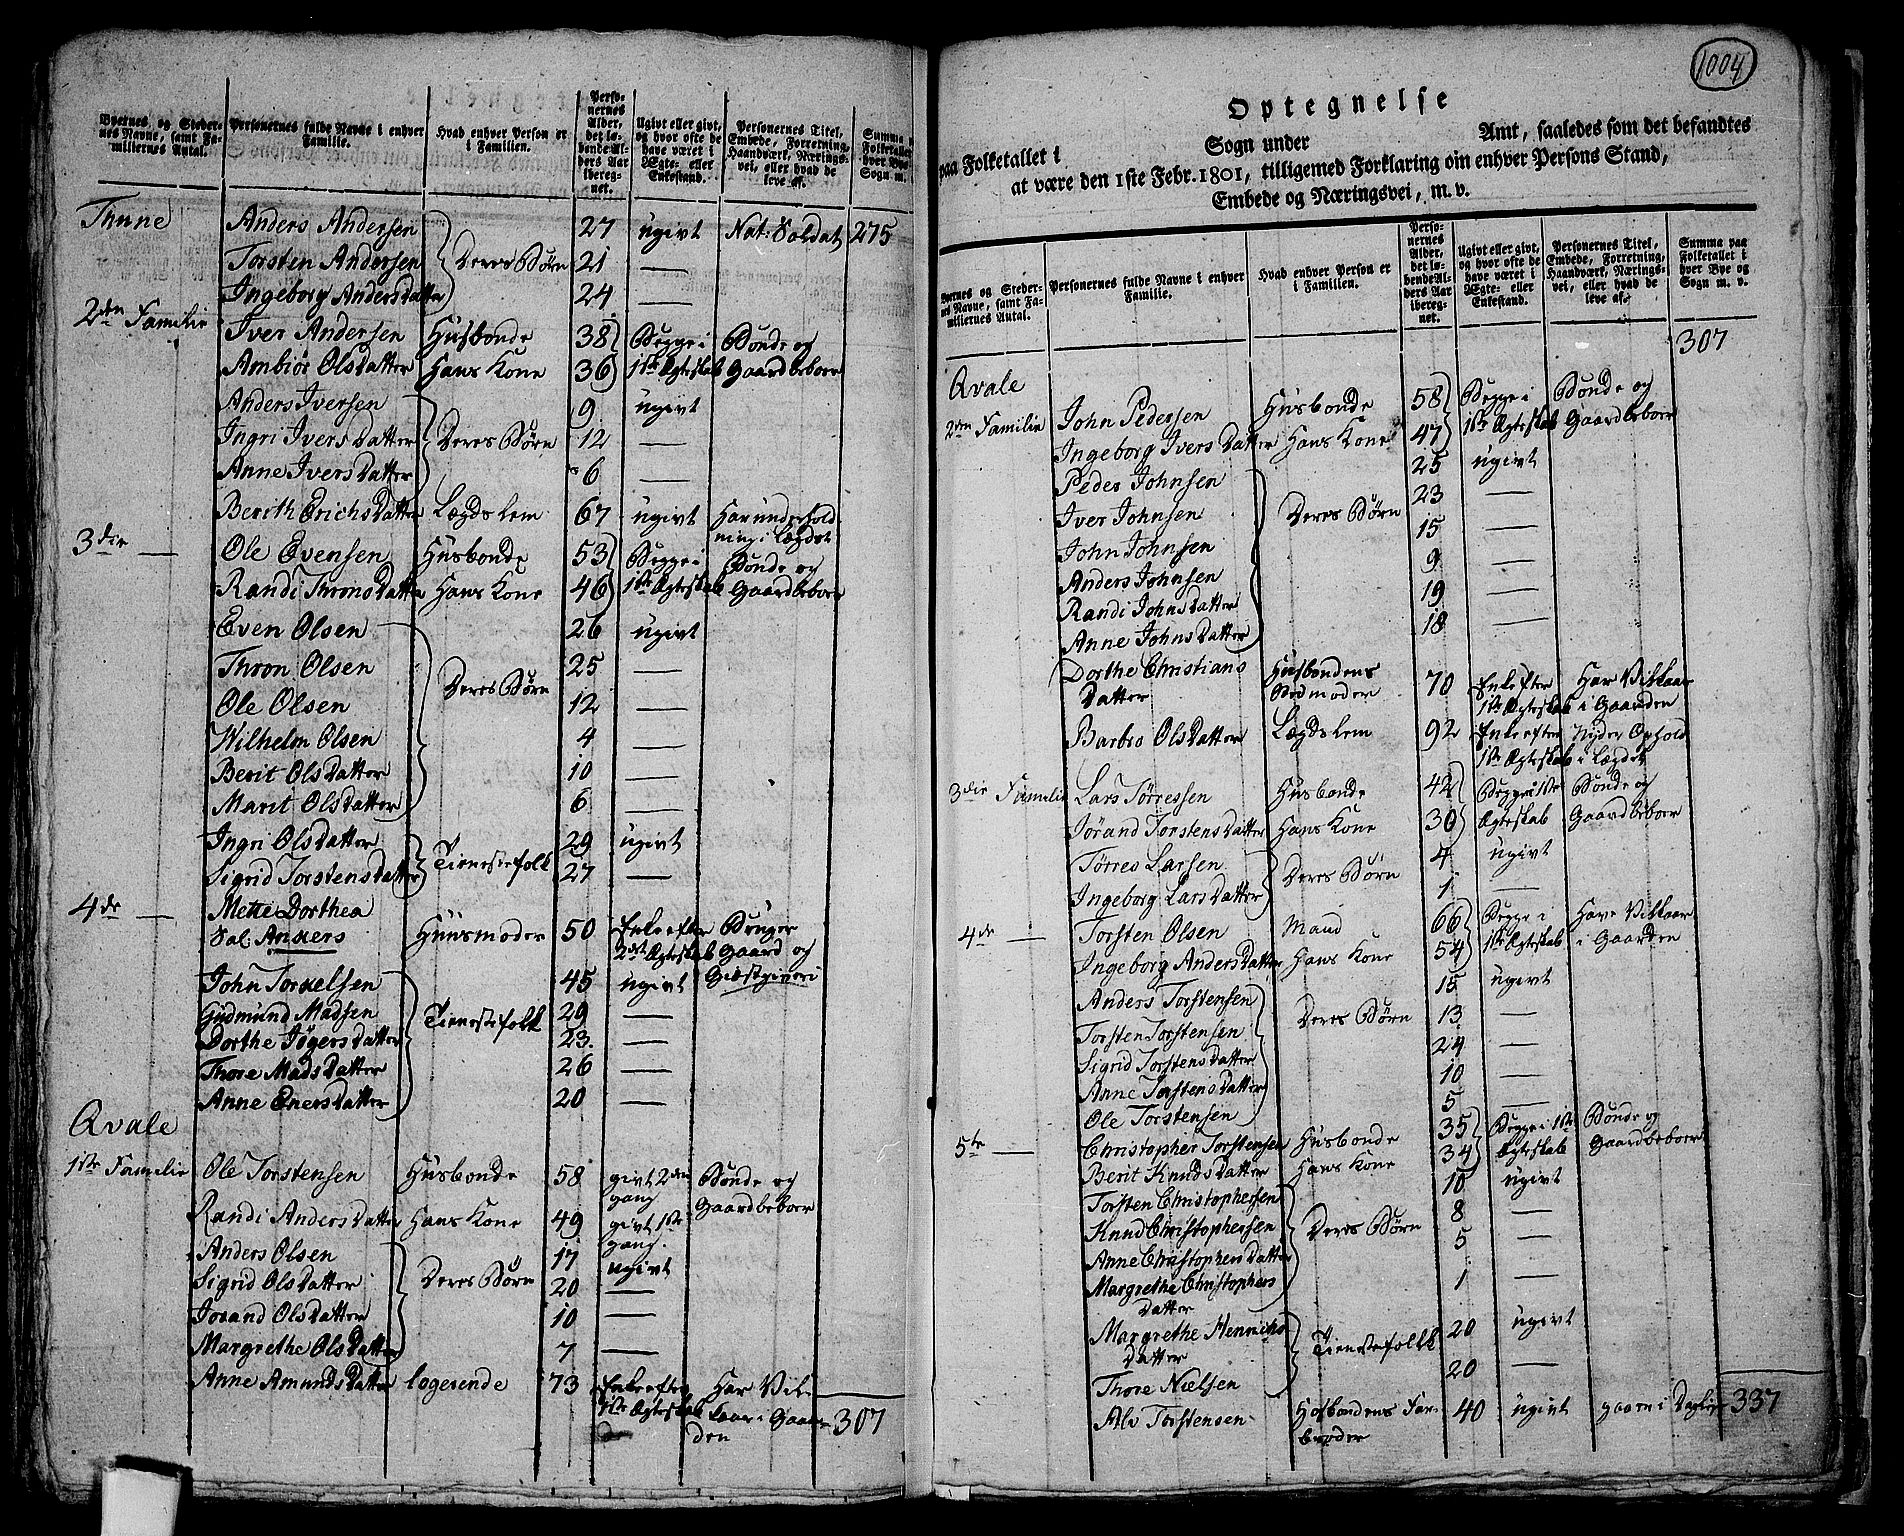 Byernes og Steder-
nes Navne, samt Fa-
miliernes Antal.
Personernes fulde Navne i enhver
Familie.
Hvad enhver Person er
i Familien.
Perso-
nernes
Alder,
det lø-
bende Al-
ders Aar
ibereg-
net.
Ugivt eller givt,
og hvor ofte de
have været i
Ægte- eller
Enkestand.
Personernes Titel,
Embede, Forretning,
Haandværk, Nærings-
vei, eller hvad de
leve af.
Summa
Folketallet
hver Bye
Sogn m.
Thune Anders Andersen 27 ugivt Nat: Soldat 275
Torsten Andersen Deres Børn 21 —
Ingeborg Andersdatter 24 —
2den Familie
Iver Andersen Husbonde 38 Begge i Bonde og
Ambiør Olsdatter Hans Kone 36 1ste Ægteskab Gaardbeboer
Anders Iversen 9 ugivt
Ingri Iversdatter Deres Børn 12 —
Anne Iversdatter 6 —
Berith Erichsdatter Lægdslem 67 ugivt Har underhold
ning i Lægdet
3die — Ole Evensen Husbonde 53 Begge i Bonde og
Randi Thronsdatter Hans Kone 46 1ste Ægteskab Gaardbeboer
Even Olsen 26 ugivt
Thron Olsen 25 —
Deres Børn
Ole Olsen 12 —
Wilhelm Olsen 4 —
Berit Olsdatter 10 —
Marit Olsdatter 6 —
Ingri Olsdatter 29 ugivt
Tienestefolk
Sigrid Torstensdatter 27 —
4de — Mette Dorthea
Sal: Anders Huusmoder 50 Enke efter Bruger
2det Ægteskab Gaard og
John Torkelsen 45 ugivt Giæstgiveri
Gudmund Madsen Tienestefolk 29 —
Dorthe Jøgersdatter 23. —
Thore Madsdatter 26 —
Anne Enersdatter 20 —
Qvale
1ste Familie Ole Torstensen Husbonde 58 givt 2den Bonde og
gang Gaardbeboer
Randi Andersdatter Hans Kone 49 givt 1ste
gang.
Anders Olsen 17 ugivt
Sigrid Olsdatter Deres Børn 20 —
Jorand Olsdatter 10 —
Margrethe Olsdatter 7 —
Anne Amundsdatter logerende 73 Enke efter Har Vil-
1ste Ægteskab kaar i Gaar-
den 307
1004
Optegnelse
paa Folketallet i Sogn under Amt, saaledes som det befandtes
at være den 1ste Febr. 1801, tilligemed Forklaring om enhver Persons Stand,
Embede og Næringsvei, m. v.
Byernes og Steder-
nes Navne, samt Fa-
miliernes Antal.
Personernes fulde Navne i enhver
Familie.
Hvad enhver Person er
i Familien.
Perso-
nernes
Alder,
det lø-
bende Al-
ders Aar
ibereg-
net.
Ugivt eller givt,
og hvor ofte de
have været i
Ægte- eller
Enkestand.
Personernes Titel,
Embede, Forretning,
Haandværk, Nærings-
vei, eller hvad de
leve af.
Summa paa
Folketallet i
hver Bye og
Sogn m. v.
307
Qvale
2den Familie John Pedersen Husbonde 58 Begge i Bonde og
Ingeborg Iversdatter Hans Kone 47 1ste Ægteskab Gaardbeboer
Peder Johnsen 25 ugivt
Iver Johnsen Deres Børn 23 —
John Johnsen 15 —
Anders Johnsen 9 —
Randi Johnsdatter 19 —
Anne Johnsdatter 18 —
Dorthe Christians Husbondens
Datter Stedmoder 70 Enke efter Har Vilkaar
1ste Ægteskab i Gaarden
Barbro Olsdatter Lægdslem 92 Enke efter Nyder Ophold
1ste Ægteskab i Lægdet
3die Familie Lars Tørressen Husbonde 42 Begge i 1ste Bonde og
Jørand Torstensdatter Hans Kone 30 Ægteskab Gaardbeboer
Tørres Larsen 4 ugivt
Deres Børn
Ingeborg Larsdatter 1 —
4de — Torsten Olsen Mand 66 Begge i Have Vilkaar
Ingeborg Andersdatter Hans Kone 54 1ste Ægteskab i Gaarden
Anders Torstensen 15 ugivt
Torsten Torstensen Deres Børn 13 —
Sigrid Torstensdatter 24 —
Anne Torstensdatter 10 —
Ole Torstensen 5 —
5te — Christopher Torstensen Husbonde 35 Begge i 1ste Bonde og
Berit Knudsdatter Hans Kone 34 Ægteskab Gaardbeboer
Torsten Christophersen 10 ugivt
Knud Christophersen Deres Børn 8 —
Anne Christophersdatter 5 —
Margrethe Christophers 1 —
Datter
Margrethe Henrichs 20 ugivt
Datter Tienestefolk
Thore Nielsen 20 —
Alv Torstensen Hosbondens Far- 40 ugivt gaaer i Dagleje 337
broder